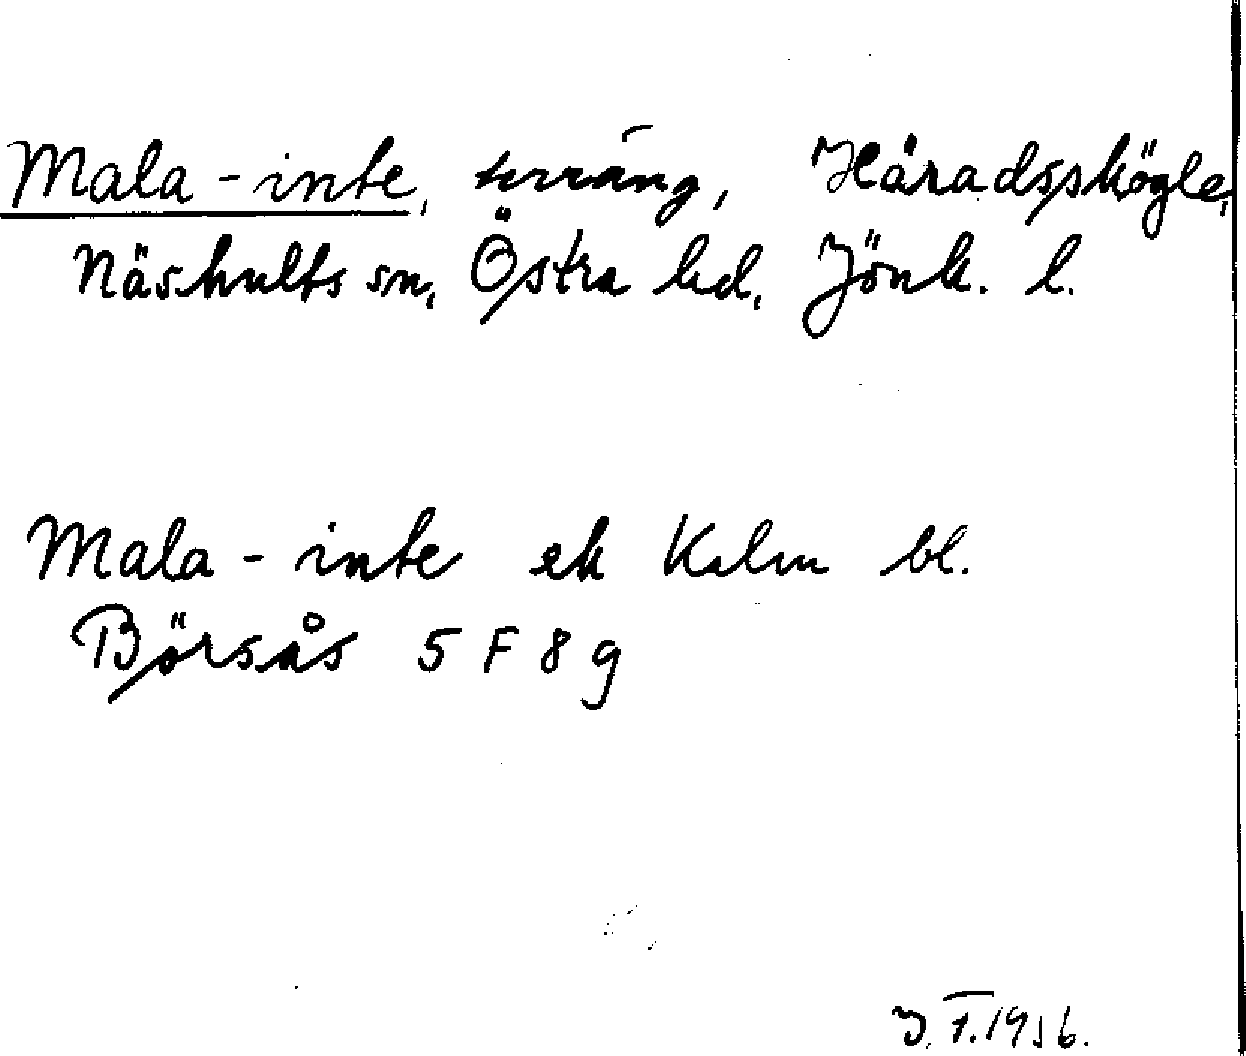 Mala-inte, terräng, Häradsskögle,
Näshults sn, Östra hd, Jönk. l.
Mala-inte ek Kalm bl.
Börsås 5 F 8 g
J. F. 1956.